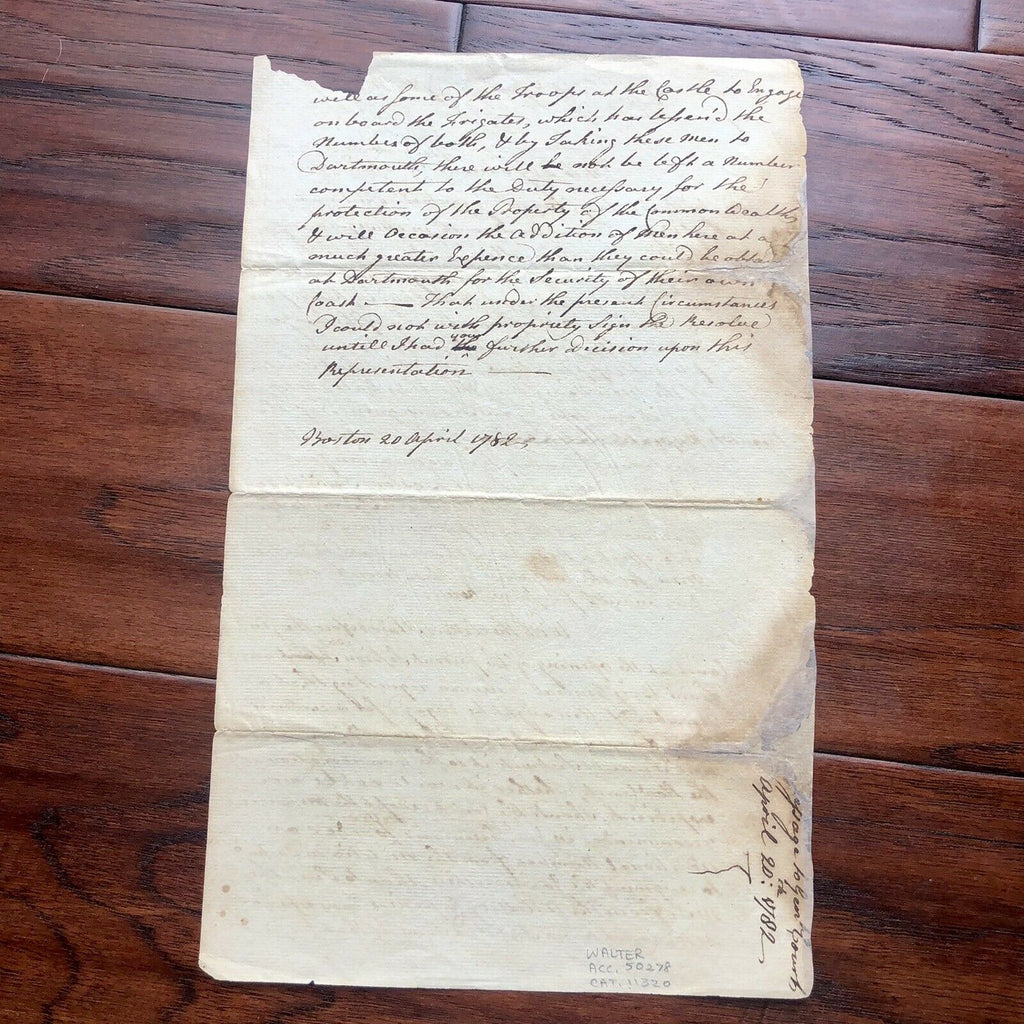 will as some of the Troops at the Castle to Engage
on board the Frigates, which has lessen'd the
Numbers of both, & by Taking these Men to
Dartmouth, there will be not be left a Number
competent to the Duty necessary for the
protection of the Property of the Commonwealth
& will Occasion the Addition of Men here at a
much greater Expence than they could be obta
at Dartmouth for the Security of their own
Coast — That under the present Circumstances
I could not with propriety Sign the Resolve
untill I had the your further decision upon this
Representation —
Boston 20 April 1782,
Message to Genl Court
April 20th: 1782,
WALTER
ACC. 50278
CAT. 11320